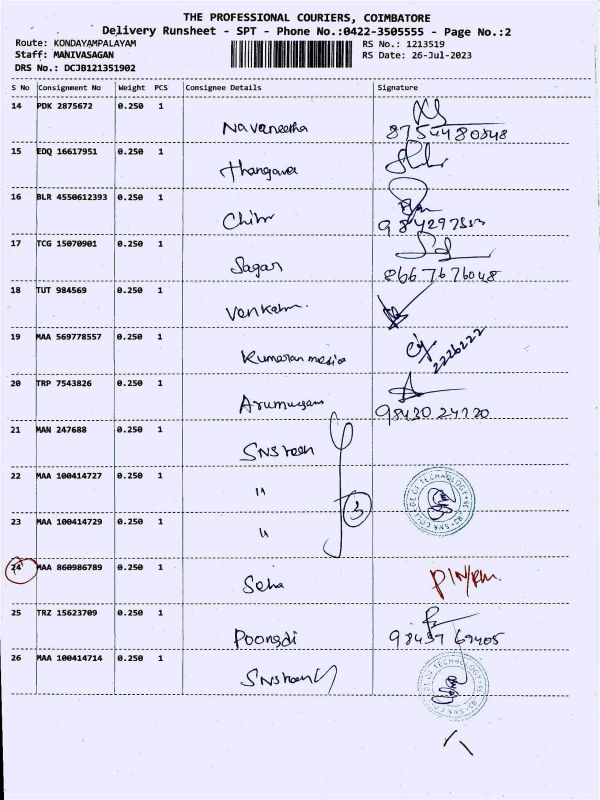 THE PROFESSIONAL COURIERS, COIMBATORE
Delivery Runsheet - SPT - Phone No.:0422-3505555 - Page No.:2
Route: KONDAYAMPALAYAM RS No.: 1213519
Staff: MANIVASAGAN RS Date: 26-Jul-2023
DRS No.: DCJB121351902
S No Consignment No Weight PCS Consignee Details Signature
14 PDK 2875672 0.250 1
Navaneetha 8754480848
15 EDQ 16617951 0.250 1
Thangavel
16 BLR 4550612393 0.250 1
Chitr
17 TCG 15070901 0.250 1
Sagar 8667676048
18 TUT 984569 0.250 1
19 MAA 569778557 0.250 1
Kumaran media 2226222
20 TRP 7543826 0.250 1
Arumugam
21 MAN 247688 0.250 1
22 MAA 100414727 0.250 1
"
23 MAA 100414729 0.250 1
" 3
24 MAA 860986789 0.250 1
25 TRZ 15623709 0.250 1
Poongdi
26 MAA 100414714 0.250 1